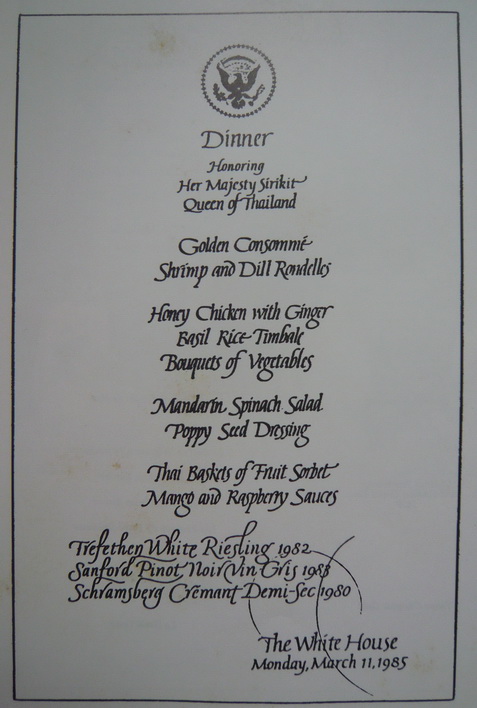 Dinner
Honoring
Her Majesty Sirikit
Queen of Thailand
Golden Consommé
Shrimp and Dill Rondelles
Honey Chicken with Ginger
Basil Rice Timbale
Bouquets of Vegetables
Mandarin Spinach Salad
Poppy Seed Dressing
Thai Baskets of Fruit Sorbet
Mango and Raspberry Sauces
Trefethen White Riesling 1982
Sanford Pinot Noir Vin Gris 1983
Schramsberg Crémant Demi-Sec 1980
The White House
Monday, March 11, 1985